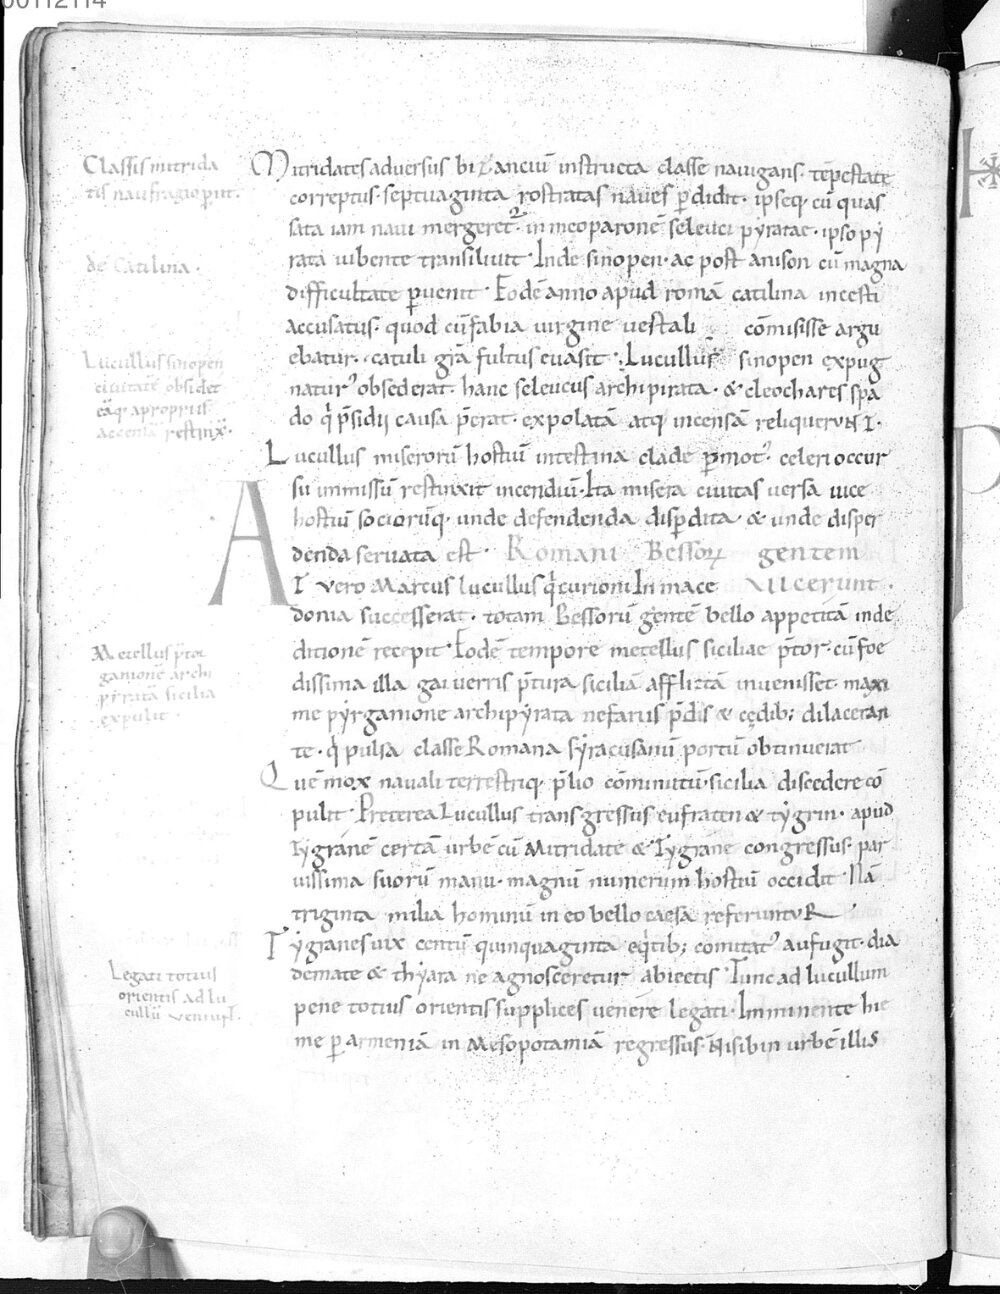 00112114
Classis mitrida
tis naufragio piit.
de Catilina.
Lucullus sinopen
ciuitatē obsidet
eāq; a propriis
accensā restinx̄.
Metellus p̄tor
ganionē archi
pirratā sicilia
expulit.
Legati totius
orientis ad lu
cullū veniuɴt.
Mitridates adversus bizanciū instructa classe navigans. tēpestate
correptus. septuaginta rostratas naves pdidit. ipseq; cū quas
sata iam navi mergeret᷒. in meoparonē seleuci pyratae. ipso py
rata iubente transiliuit. Inde sinopen. ac post amison cū magna
difficultate pvenit. Eodē anno apud romā catilina incesti
accusatus. quod cū fabia virgine vestali cōmisisse argu
ebatur. catuli gr̄a fultus evasit. Lucullus sinopen expug
naturꝰ obsederat. hanc seleucus archipirata. & cleochares spa
do q̄ p̄sidii causa p̄erat. expolatā atq; incensā reliqueruɴt.
Lucullus miserorū hostiū intestina clade pmotꝰ. celeri occur
su immissū restinxit incendiū. Ita misera civitas versa vice
hostiū sociorūq; unde defendenda dispdita. & unde disper
denda servata est. Romani Bessoꝝ gentem
AT vero Marcus lucullus q̄ curioni In mace vicerunt.
donia successerat. totam Bessorū gentē bello appetitā in de
ditionē recepit. Eodē tempore metellus siciliae p̄tor. cū foe
dissima illa gai verris p̄tura siciliā afflictā invenisset. maxi
me pyrganione archipyrata nefariis p̄dis & cędib; dilaceran
te. q̄ pulsa classe Romana syracusanū portū obtinuerat.
Quē mox navali terrestriq; p̄lio cōminutū. sicilia discedere cō
pulit. Preterea Lucullus transgressus eufraten & tygrin. apud
Tygranē certā urbē cū Mitridate & Tygrane congressus. par
vissima suorū manu. magnū numerum hostiū occidit. Nā
triginta milia hominū in eo bello caesa referuntuR
Tygranes vix centū quinquaginta eq̄tib; comitatꝰ aufugit. dia
demate & thyara ne agnosceretur abiectis. Tunc ad lucullum
pene totius orientis supplices venere legati. Imminente hie
me p armeniā in Mesopotamiā regressus. Nisibin urbē illis